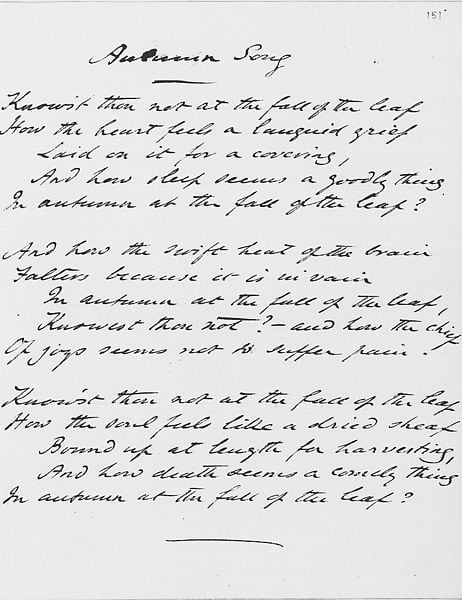 151
Autumn Song
Know'st thou not at the fall of the leaf
How the heart feels a languid grief
Laid on it for a covering,
And how sleep seems a goodly thing
In autumn at the fall of the leaf?
And how the swift beat of the brain
Falters because it is in vain
In autumn at the fall of the leaf,
Knowest thou not? — and how the chief
Of joys seems not to suffer pain?
Know'st thou not at the fall of the leaf
How the soul feels like a dried sheaf
Bound up at length for harvesting,
And how death seems a comely thing
In autumn at the fall of the leaf?